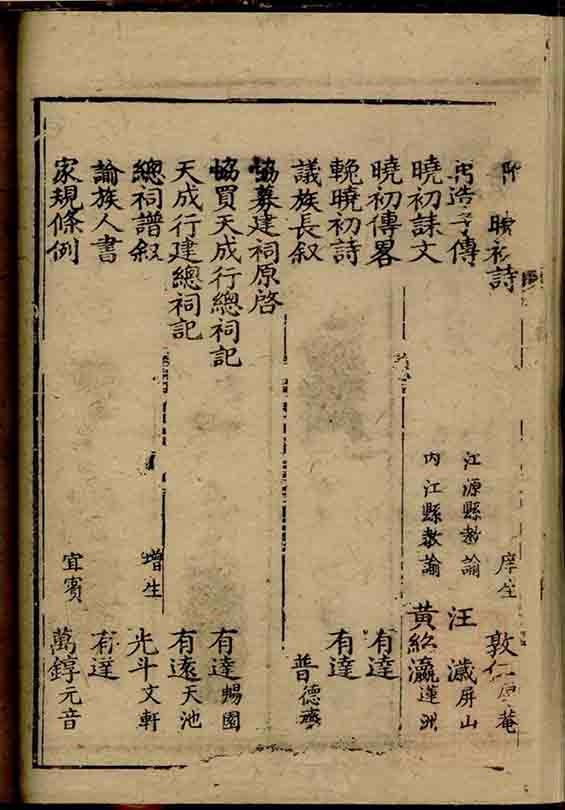 曉初詩 庠生 敦
造子傳 江源縣教諭 汪 屏山
曉初誄文 内江縣教諭 黃 瀛 蓮洲
曉初傳畧 有達
輓曉初詩 有達
議族長叙 普德齋
協募建祠原啓
協買天成行總祠記 有達 園
天成行建總祠記 有遠 天池
總祠譜叙 增生 光斗 文軒
諭族人書 有達
家規條例 宜賓 萬錞 元音